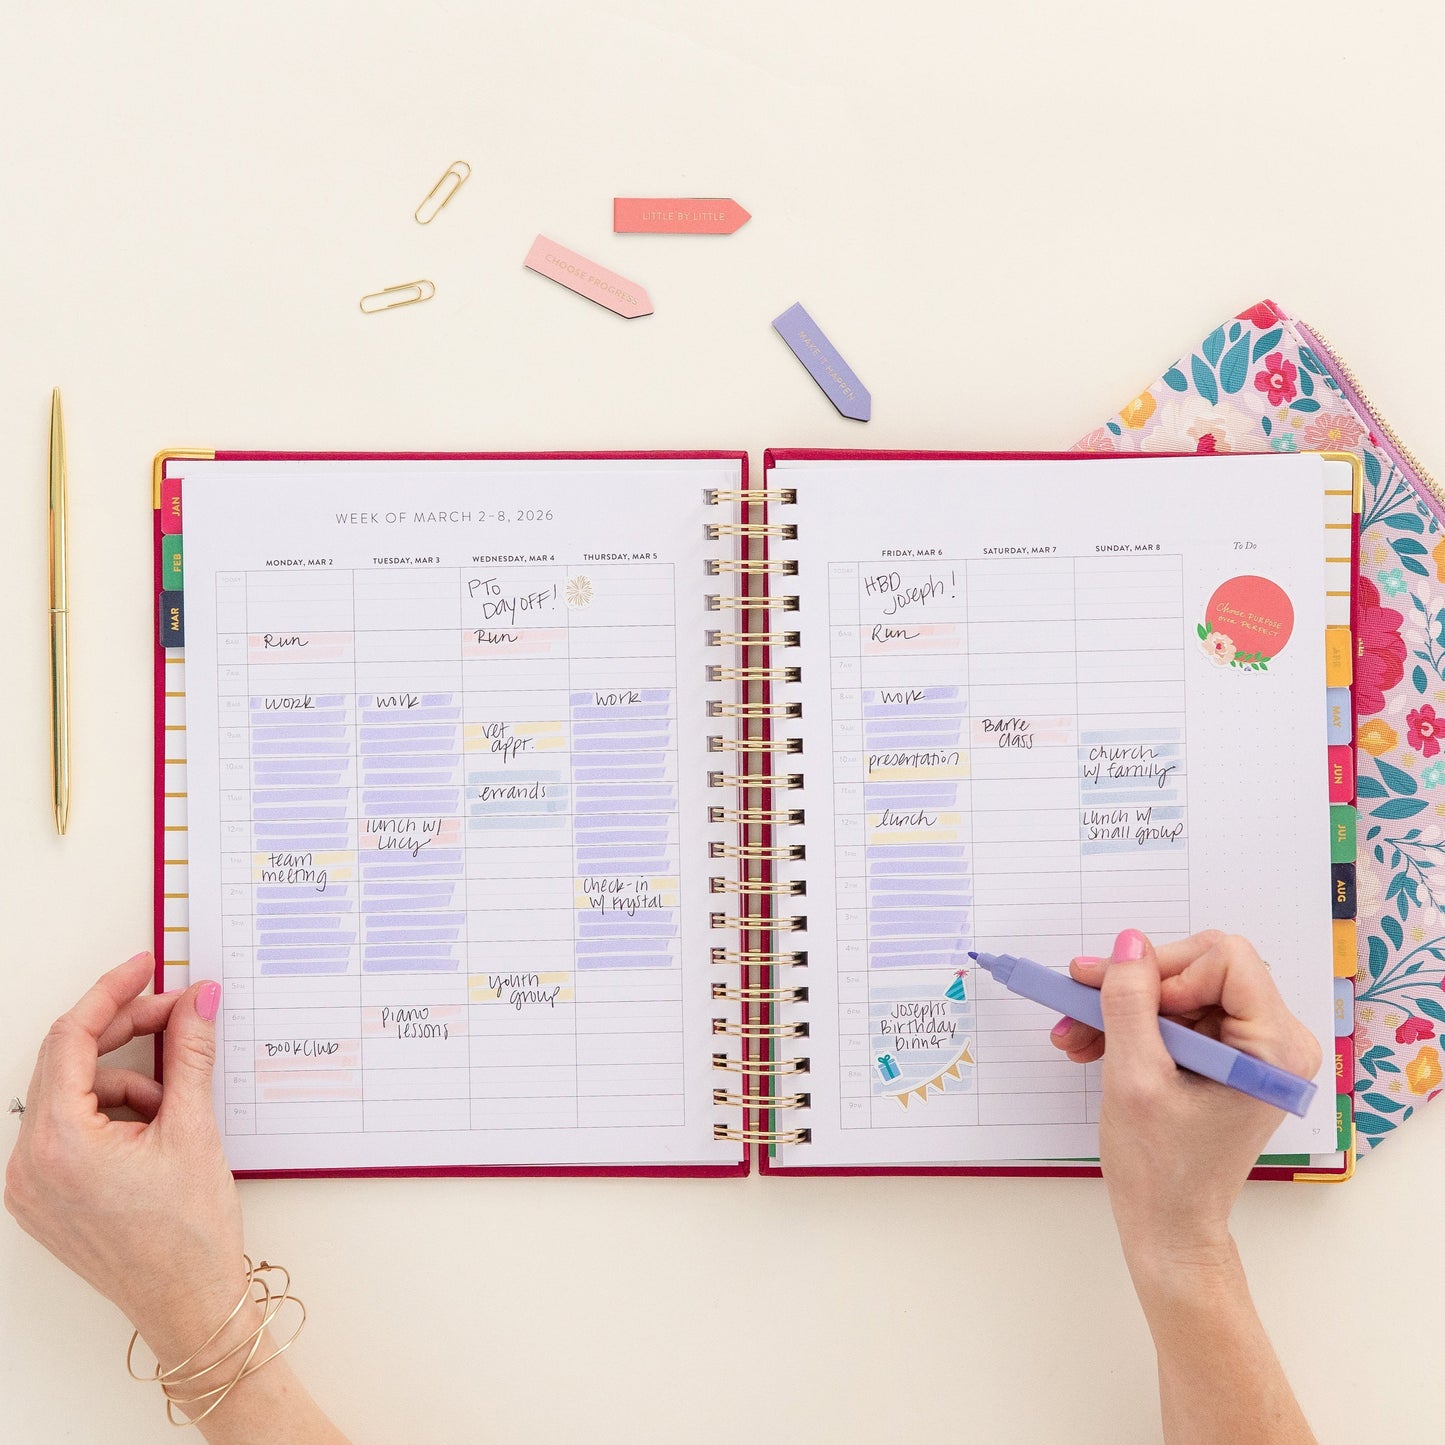 LITTLE BY LITTLE
CHOOSE PROGRESS
MAKE IT HAPPEN
JAN
FEB
MAR
WEEK OF MARCH 2-8, 2026
MONDAY, MAR 2
TUESDAY, MAR 3
WEDNESDAY, MAR 4
THURSDAY, MAR 5
TODAY
6AM
7AM
8AM
9AM
10AM
11AM
12PM
1PM
2PM
3PM
4PM
5PM
6PM
7PM
8PM
9PM
Run
work
team
meeting
BOOKCLUB
work
lunch w/
Lucy
piano
lessons
PTO
DAY OFF!
Run
vet
appt.
errands
youth
group
work
check-in
w/ Krystal
FRIDAY, MAR 6
SATURDAY, MAR 7
SUNDAY, MAR 8
To Do
TODAY
6AM
7AM
8AM
9AM
10AM
11AM
12PM
1PM
2PM
3PM
4PM
5PM
6PM
7PM
8PM
9PM
HBD
Joseph!
Run
work
presentation
lunch
Joseph's
Birthday
Dinner
Barre
Class
Church
w/ family
Lunch w/
small group
Choose PURPOSE
over PERFECT
57
APR
MAY
JUN
JUL
AUG
SEP
OCT
NOV
DEC